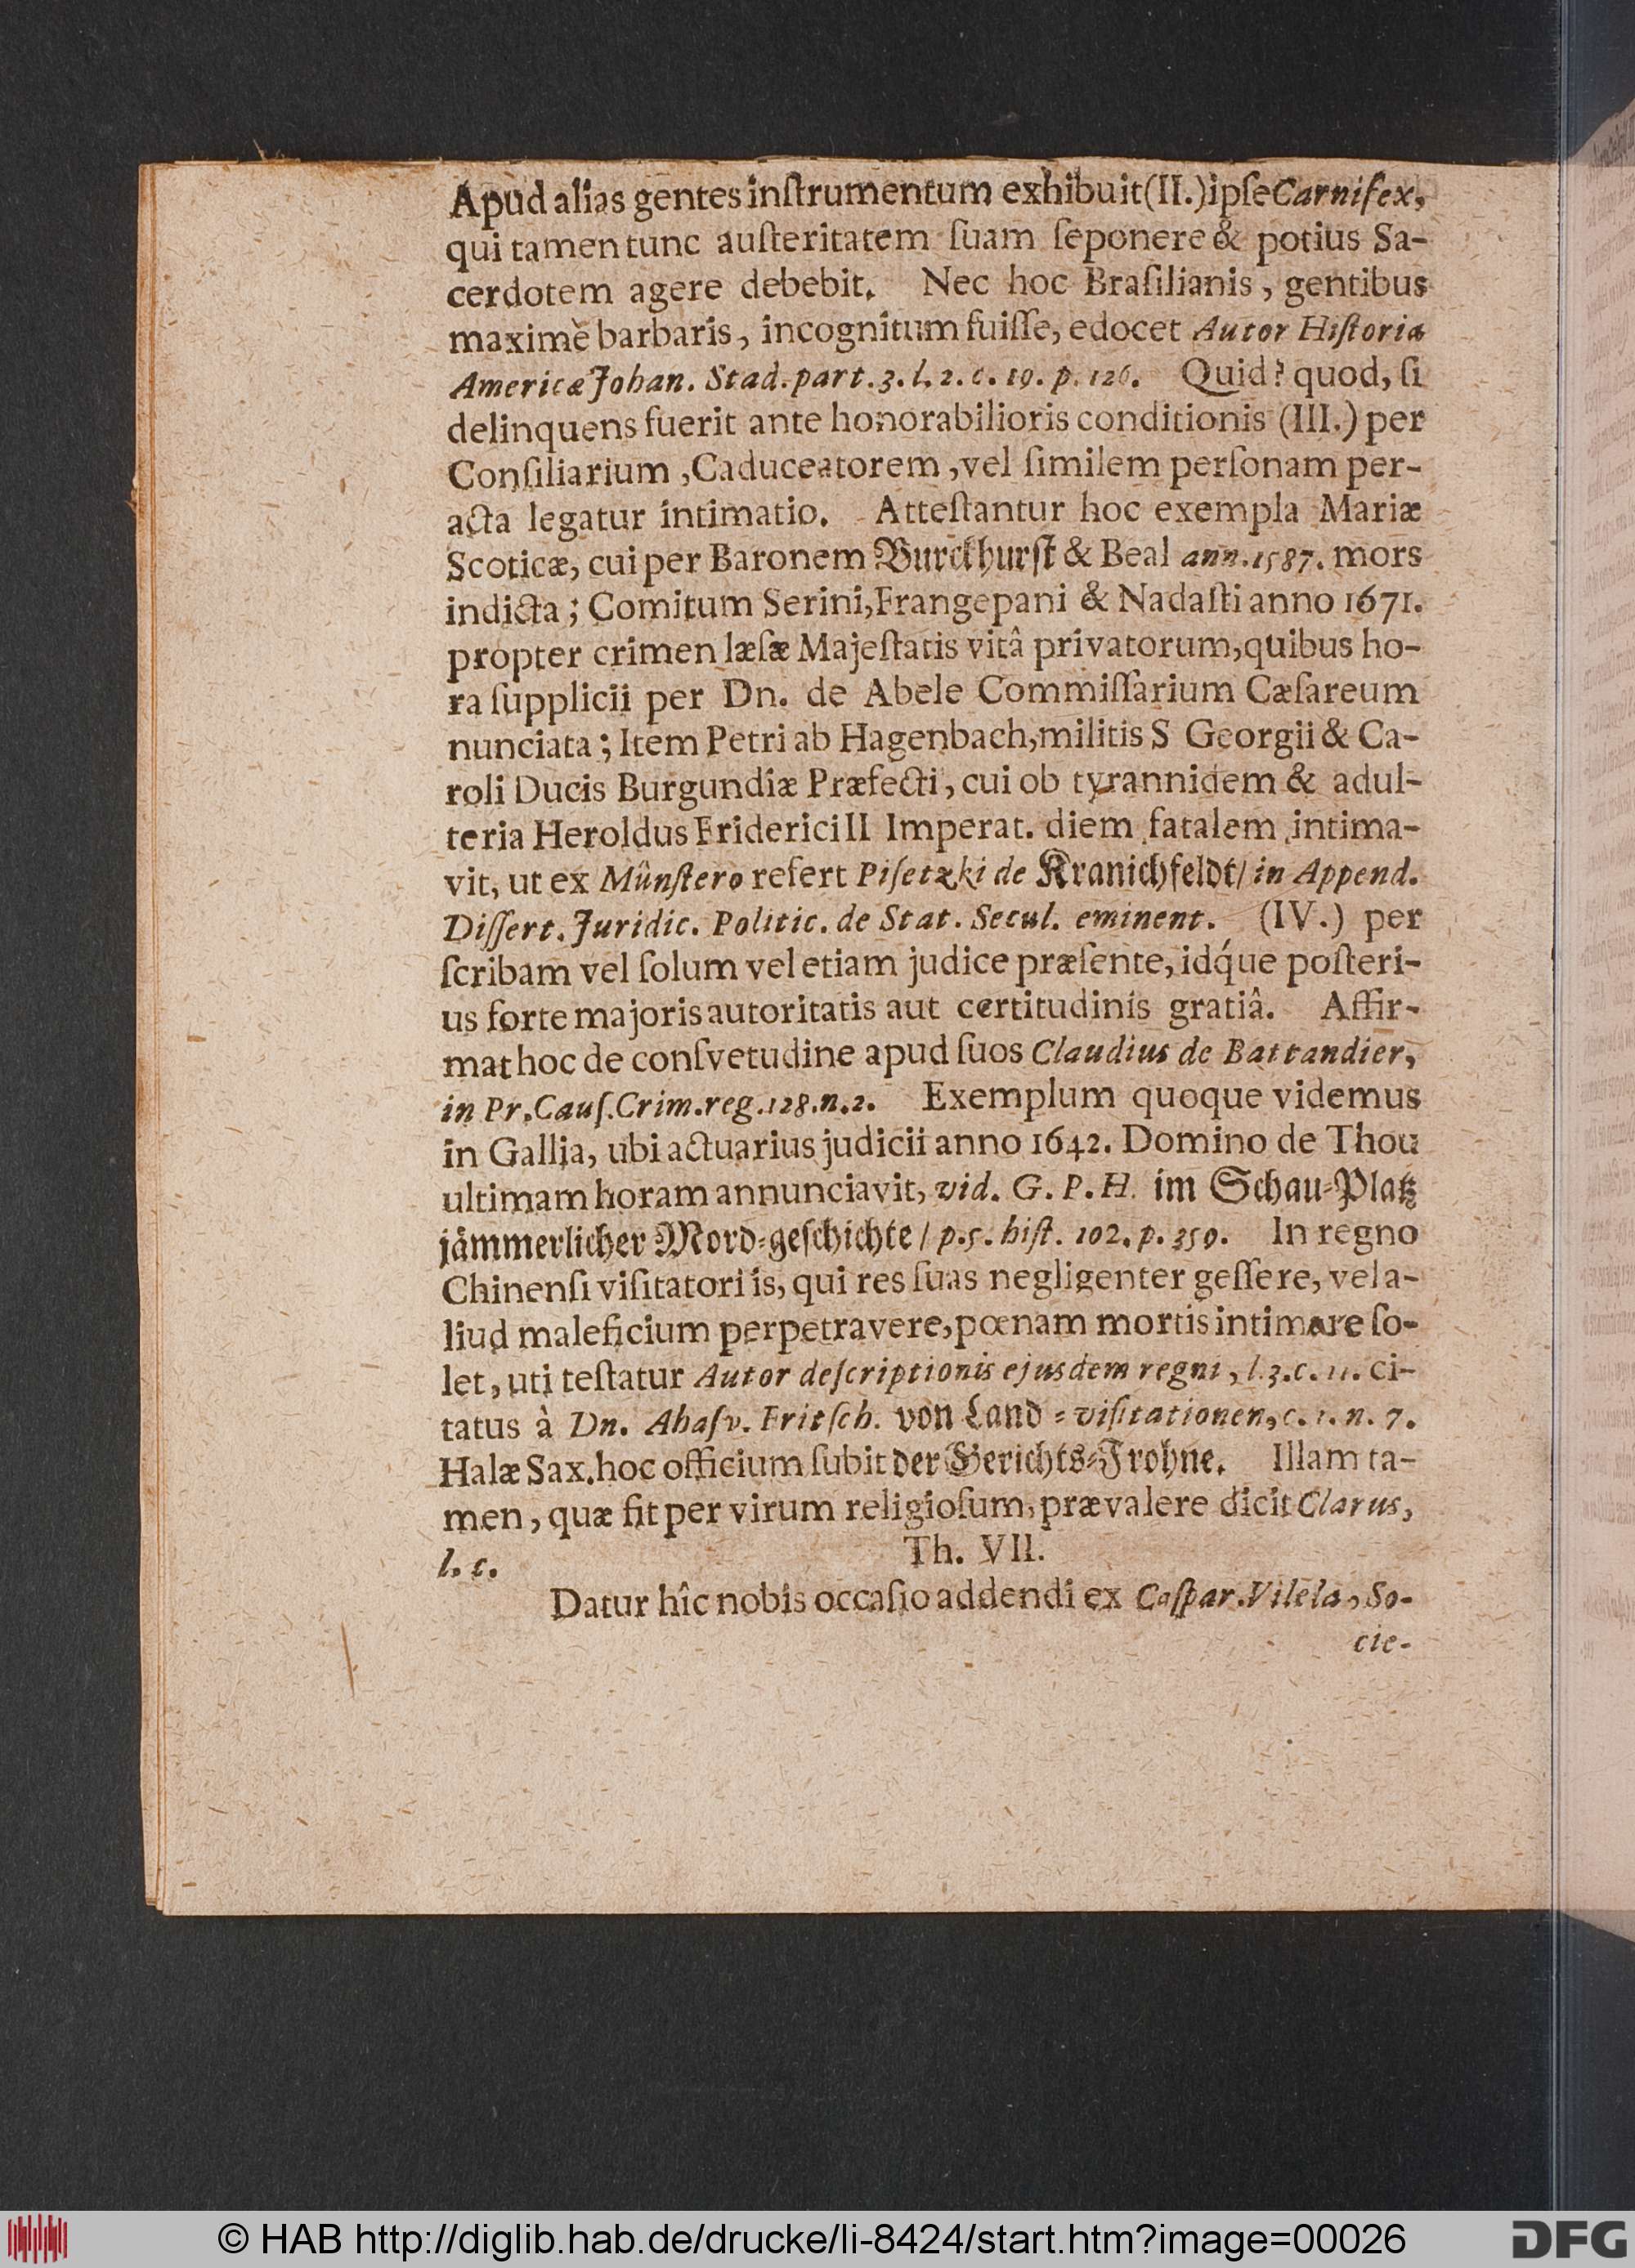 Apud alias gentes inſtrumentum exhibuit (II.) ipſe Carnifex,
qui tamen tunc auſteritatem ſuam ſeponere & potius Sa-
cerdotem agere debebit. Nec hoc Braſilianis, gentibus
maximè barbaris, incognitum fuiſſe, edocet Autor Hiſtoriæ
Americæ Johan. Stad. part. 3. l. 2. c. 19. p. 126. Quid? quod, ſi
delinquens fuerit ante honorabilioris conditionis (III.) per
Conſiliarium, Caduceatorem, vel ſimilem perſonam per-
acta legatur intimatio. Atteſtantur hoc exempla Mariæ
Scoticæ, cui per Baronem Burckhurſt & Beal ann. 1587. mors
indicta; Comitum Serini, Frangepani & Nadaſti anno 1671.
propter crimen læſæ Majeſtatis vitâ privatorum, quibus ho-
ra ſupplicii per Dn. de Abele Commiſſarium Cæſareum
nunciata; Item Petri ab Hagenbach, militis S Georgii & Ca-
roli Ducis Burgundiæ Præfecti, cui ob tyrannidem & adul-
teria Heroldus Friderici II Imperat. diem fatalem intima-
vit, ut ex Mûnſtero refert Piſetzki de Kranichfeldt/ in Append.
Diſſert. Juridic. Politic. de Stat. Secul. eminent. (IV.) per
ſcribam vel ſolum vel etiam judice præſente, idq́ue poſteri-
us forte majoris autoritatis aut certitudinis gratiâ. Affir-
mat hoc de conſvetudine apud ſuos Claudius de Battandier,
in Pr. Cauſ. Crim. reg. 128. n. 2. Exemplum quoque videmus
in Gallia, ubi actuarius judicii anno 1642. Domino de Thou
ultimam horam annunciavit, vid. G. P. H. im Schau-Platz
jämmerlicher Mord-geſchichte / p. 5. hiſt. 102. p. 359. In regno
Chinenſi viſitatori is, qui res ſuas negligenter geſſere, vel a-
liud maleficium perpetravere, pœnam mortis intimare ſo-
let, uti teſtatur Autor deſcriptionis ejusdem regni, l. 3. c. 11. ci-
tatus à Dn. Ahaſv. Fritſch. von Land-viſitationen, c. 1. n. 7.
Halæ Sax. hoc officium ſubit der Gerichts-Frohne. Illam ta-
men, quæ fit per virum religioſum, prævalere dicit Clarus,
l. c.
Th. VII.
Datur hîc nobis occaſio addendi ex Caſpar. Vilela, So-
cie-
© HAB http://diglib.hab.de/drucke/li-8424/start.htm?image=00026
DFG